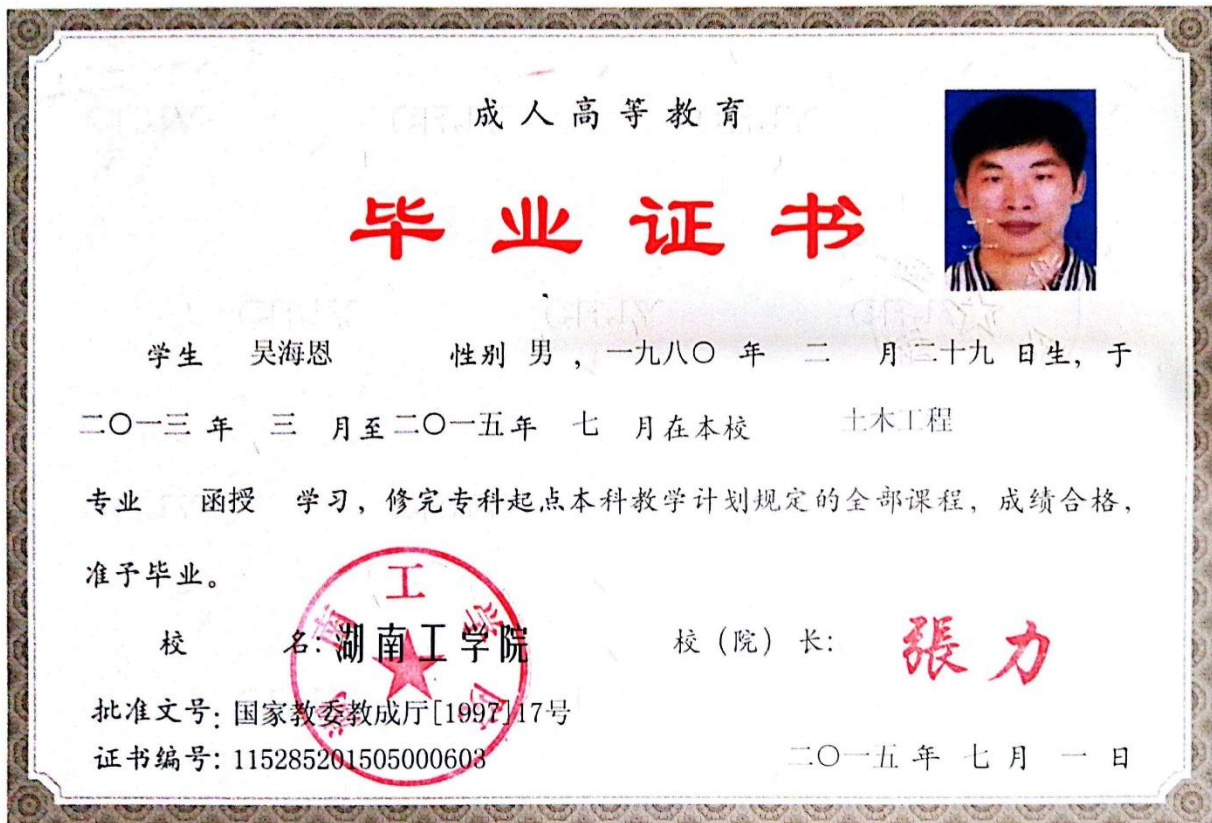 成人高等教育
毕业证书
学生 吴海恩 性别 男 ，一九八〇 年 二 月 二十九 日生，于
二〇一三 年 三 月至 二〇一五年 七 月在本校 土木工程
专业 函授 学习，修完专科起点本科教学计划规定的全部课程，成绩合格，
准予毕业。
校 名：湖南工学院 校（院）长： 張力
湖南工学院
批准文号：国家教委教成厅[1997]17号
证书编号：115285201505000603 二〇一五 年 七 月 一 日